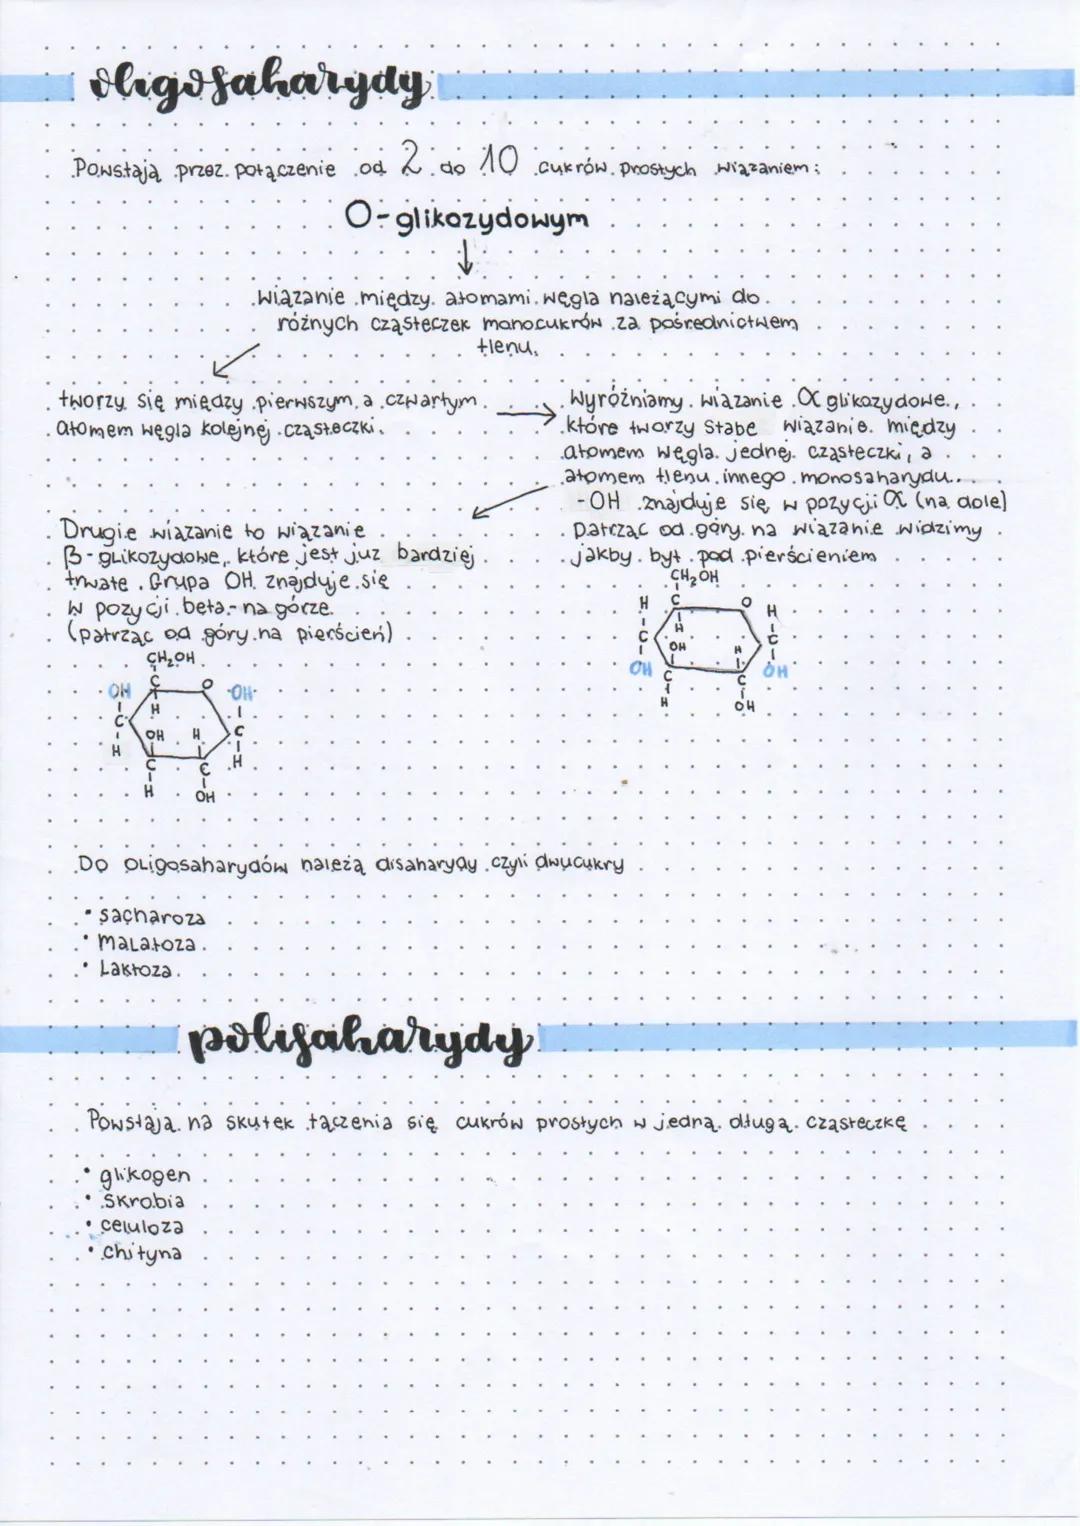 oligosaharydy
Powstają przez połączenie od 2 do 10 cukrów prostych wiązaniem:
O-glikozydowym
wiązanie między atomami węgla należącymi do
różnych cząsteczek monocukrów za pośrednictwem
tlenu.
tworzy się między pierwszym a czwartym
atomem węgla kolejnej cząsteczki.
Wyróżniamy wiązanie α glikozydowe,
które tworzy słabe wiązanie między
atomem węgla jednej cząsteczki, a
atomem tlenu innego monosaharydu.
-OH znajduje się w pozycji α (na dole)
patrząc od góry na wiązanie widzimy
jakby był pod pierścieniem
Drugie wiązanie to wiązanie
β-glikozydowe, które jest już bardziej
trwałe. Grupa OH znajduje się
w pozycji beta - na górze.
(patrząc od góry na pierścień)
CH₂OH
H C O H
H
C OH H C
OH C C OH
H OH
CH₂OH
OH C O OH
H
C OH H C
H C C H
H OH
Do oligosaharydów należą disaharydy czyli dwucukry
• sacharoza
• malatoza
• Laktoza
polisaharydy
Powstają na skutek łączenia się cukrów prostych w jedną długą cząsteczkę
• glikogen
• skrobia
• celuloza
• chityna